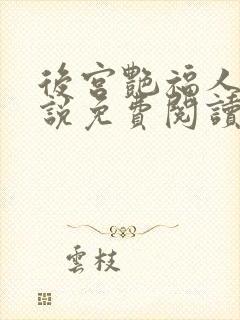 後宮艷福人
說免費閱讀
雲枝